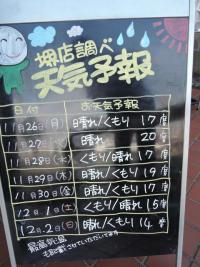 堺店調べ
天気予報
日付 お天気予報
11月26日(月) 晴れ/くもり 17度
11月27日(火) 晴れ 20度
11月28日(水) くもり/晴れ 17度
11月29日(木) 晴れ/くもり 19度
11月30日(金) 晴れ/くもり 17度
12月1日(土) くもり/晴れ 15度
12月2日(日) 晴れ/くもり 14度
最高気温
させていただいてます